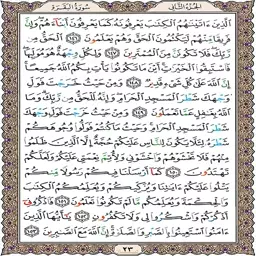 الجزء الثاني سورة البقرة
الَّذِينَ ءَاتَيْنَٰهُمُ الْكِتَٰبَ يَعْرِفُونَهُ كَمَا يَعْرِفُونَ أَبْنَاءَهُمْ وَإِنَّ
فَرِيقًا مِنْهُمْ لَيَكْتُمُونَ الْحَقَّ وَهُمْ يَعْلَمُونَ ١٤٦ الْحَقُّ مِنْ
رَبِّكَ فَلَا تَكُونَنَّ مِنَ الْمُمْتَرِينَ ١٤٧ وَلِكُلٍّ وِجْهَةٌ هُوَ مُوَلِّيهَا
فَاسْتَبِقُوا الْخَيْرَٰتِ أَيْنَ مَا تَكُونُوا يَأْتِ بِكُمُ اللَّهُ جَمِيعًا
إِنَّ اللَّهَ عَلَىٰ كُلِّ شَيْءٍ قَدِيرٌ ١٤٨ وَمِنْ حَيْثُ خَرَجْتَ فَوَلِّ
وَجْهَكَ شَطْرَ الْمَسْجِدِ الْحَرَامِ وَإِنَّهُ لَلْحَقُّ مِنْ رَبِّكَ وَمَا
اللَّهُ بِغَٰفِلٍ عَمَّا تَعْمَلُونَ ١٤٩ وَمِنْ حَيْثُ خَرَجْتَ فَوَلِّ وَجْهَكَ
شَطْرَ الْمَسْجِدِ الْحَرَامِ وَحَيْثُ مَا كُنْتُمْ فَوَلُّوا وُجُوهَكُمْ
شَطْرَهُ لِئَلَّا يَكُونَ لِلنَّاسِ عَلَيْكُمْ حُجَّةٌ إِلَّا الَّذِينَ ظَلَمُوا
مِنْهُمْ فَلَا تَخْشَوْهُمْ وَاخْشَوْنِي وَلِأُتِمَّ نِعْمَتِي عَلَيْكُمْ وَلَعَلَّكُمْ
تَهْتَدُونَ ١٥٠ كَمَا أَرْسَلْنَا فِيكُمْ رَسُولًا مِنْكُمْ
يَتْلُوا عَلَيْكُمْ ءَايَٰتِنَا وَيُزَكِّيكُمْ وَيُعَلِّمُكُمُ الْكِتَٰبَ
وَالْحِكْمَةَ وَيُعَلِّمُكُمْ مَا لَمْ تَكُونُوا تَعْلَمُونَ ١٥١ فَاذْكُرُونِي
أَذْكُرْكُمْ وَاشْكُرُوا لِي وَلَا تَكْفُرُونِ ١٥٢ يَٰأَيُّهَا الَّذِينَ
ءَامَنُوا اسْتَعِينُوا بِالصَّبْرِ وَالصَّلَوٰةِ إِنَّ اللَّهَ مَعَ الصَّٰبِرِينَ ١٥٣
٢٣